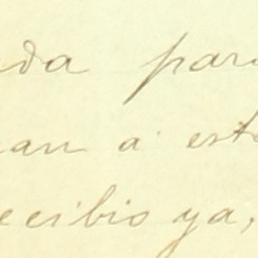 da para
an a esto
ecibio ya,